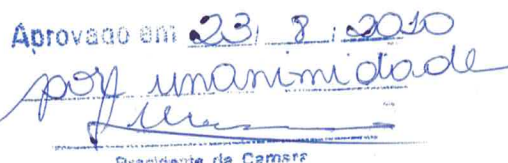 Aprovado em 23, 8, 2010
por unanimidade
Presidente da Camara